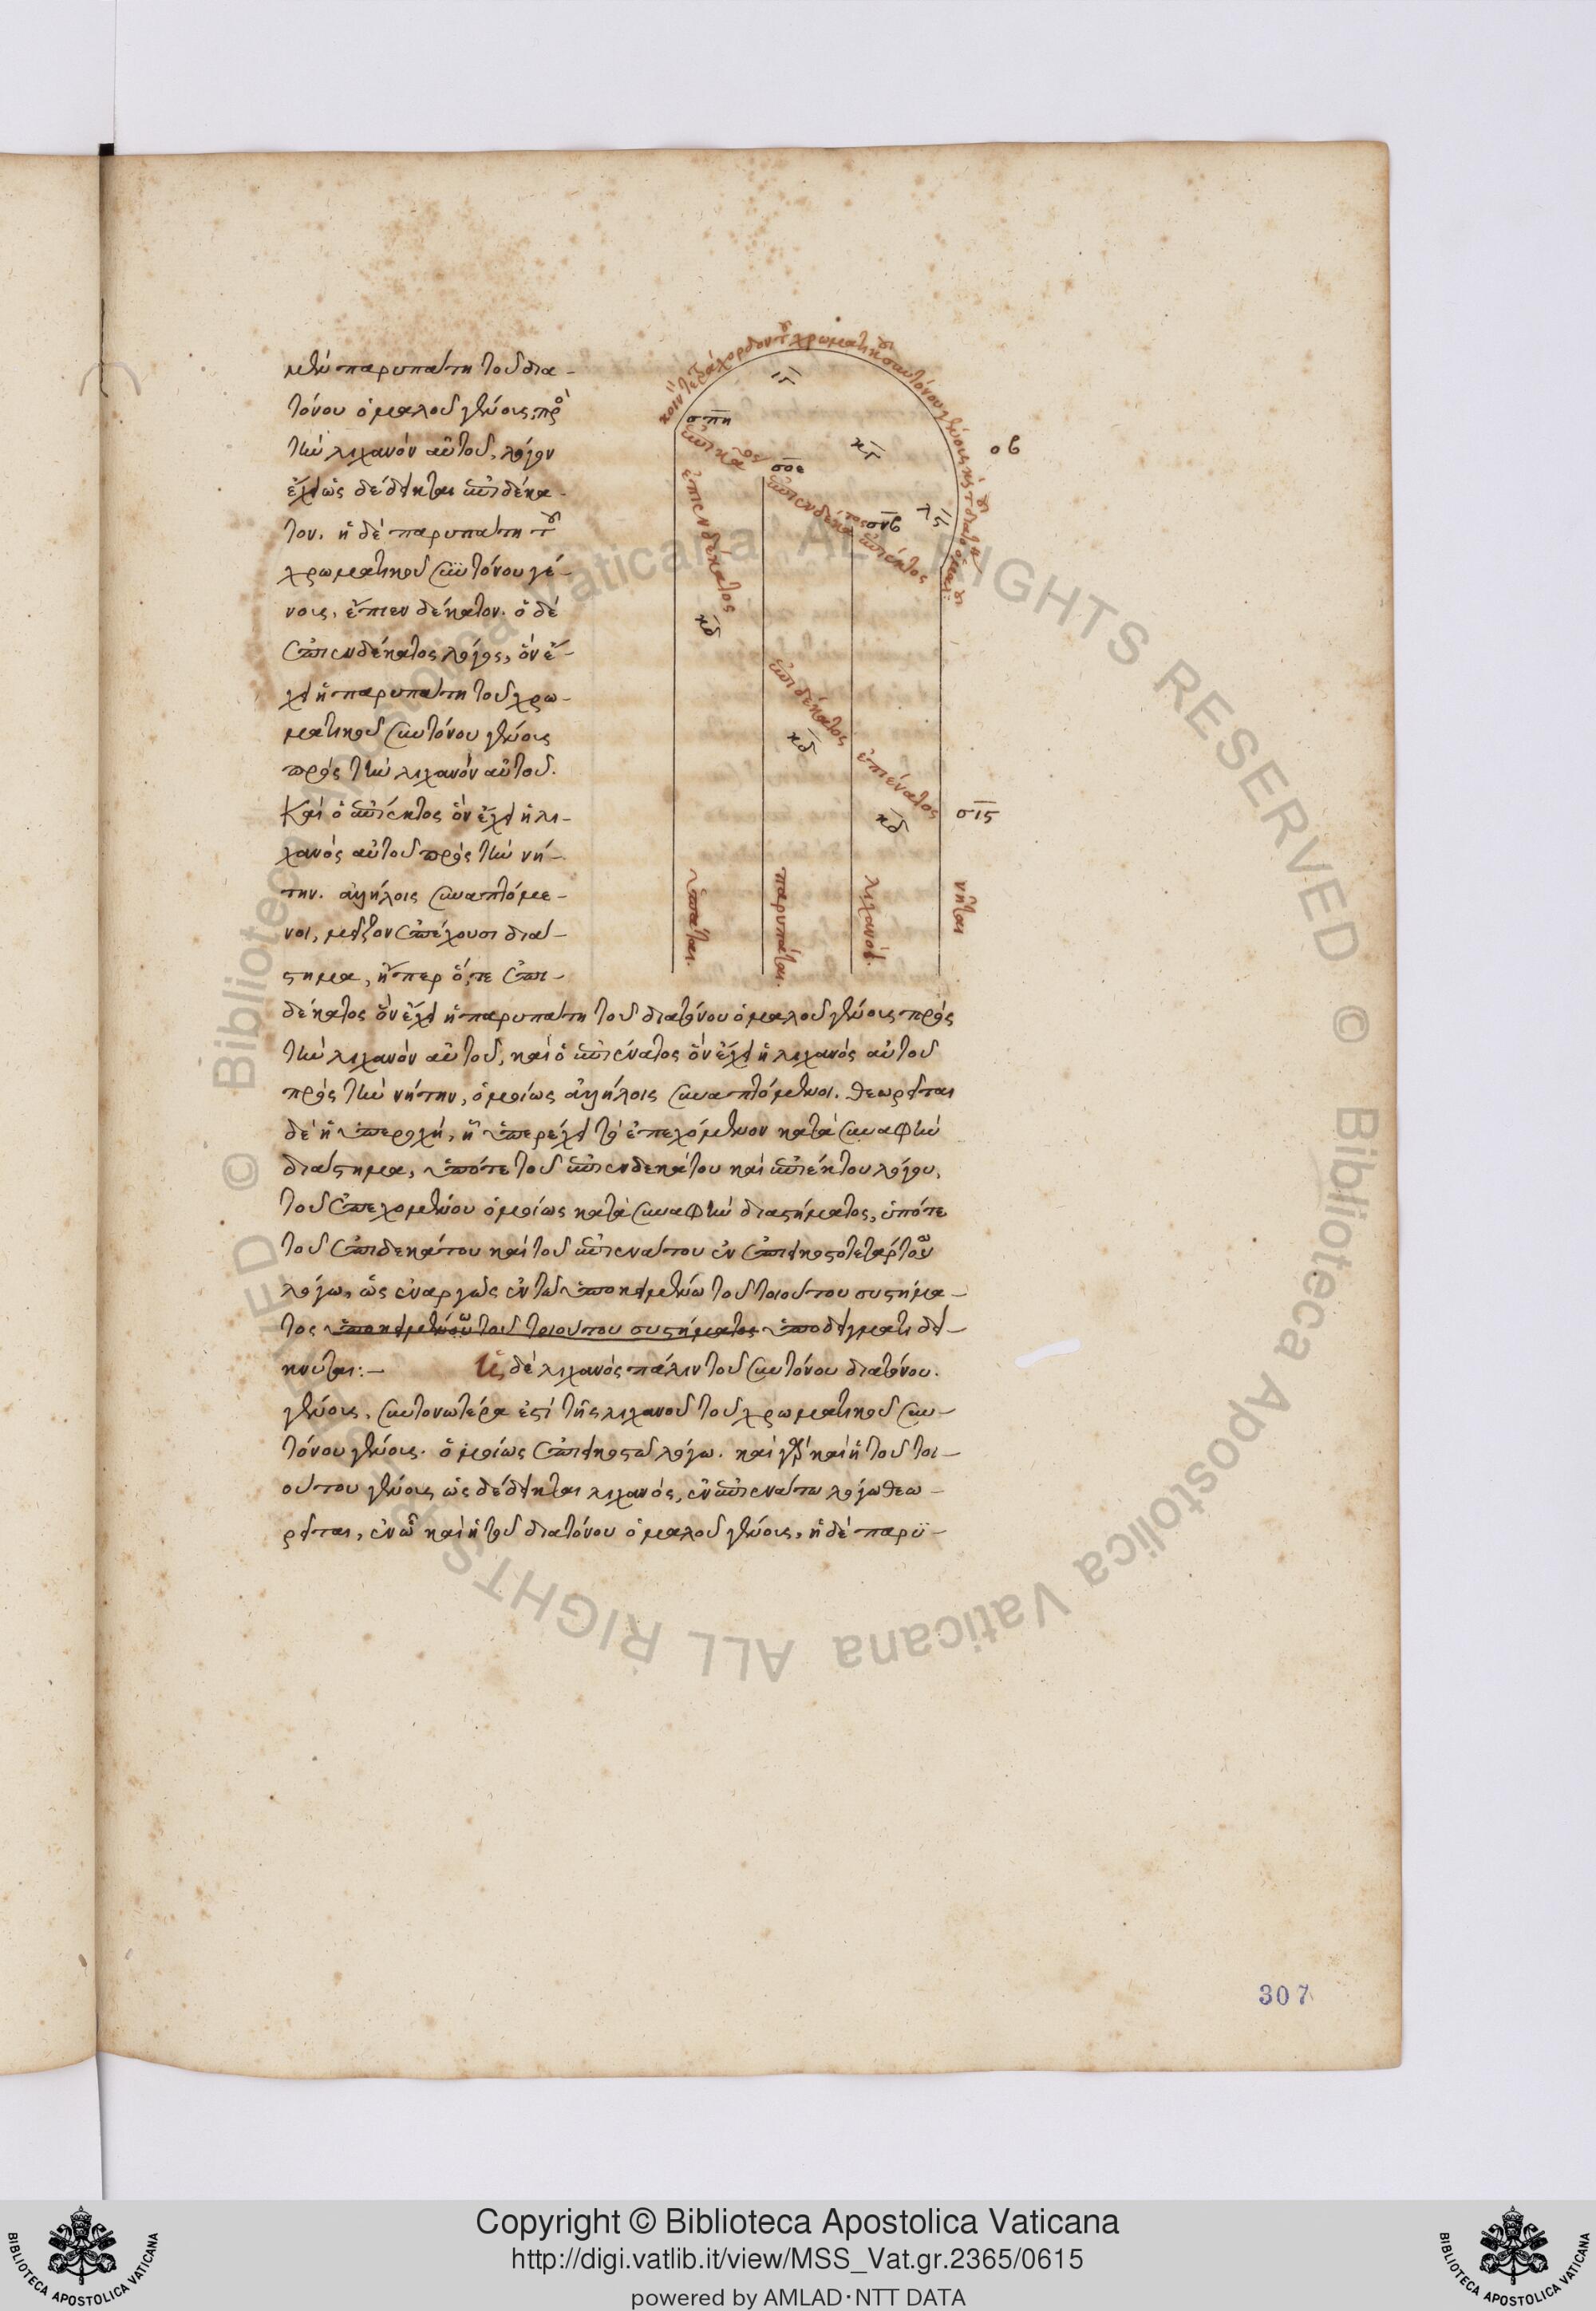 μὲν παρυπάτη τοῦ δια-
τόνου ὁμαλοῦ γένους, πρὸ
τὴν λιχανὸν αὐτοῦ, λόγον
ἔχει ὡς δέδεικται ἐπιδέκα-
τον. ἡ δὲ παρυπάτη τοῦ
χρωματικοῦ συντόνου γέ-
νους, ἐπιενδέκατον. ὁ δὲ
ἐπιενδέκατος λόγος, ὃν ἔ-
χει ἡ παρυπάτη τοῦ χρω-
ματικοῦ συντόνου γένους
πρὸς τὴν λιχανὸν αὐτοῦ.
καὶ ὁ ἐπιέκτος ὃν ἔχει ἡ λι-
χανὸς αὐτοῦ πρὸς τὴν νή-
την. ἀλλήλοις συναπτόμε-
νοι, μεῖζον ἐπέχουσι διά-
στημα, ἤπερ ὅ, τε ἐπι-
δέκατος ὃν ἔχει ἡ παρυπάτη τοῦ διατόνου ὁμαλοῦ γένους πρὸς
τὴν λιχανὸν αὐτοῦ, καὶ ὁ ἐπιένατος ὃν ἔχει ἡ λιχανὸς αὐτοῦ
πρὸς τὴν νήτην, ὁμοίως ἀλλήλοις συναπτόμενοι. θεωρεῖται
δὲ ἡ ὑπεροχή, ἣ ὑπερέχει τὸ ἐπεχόμενον κατὰ συναφὴν
διάστημα, ὑπό τε τοῦ ἐπιενδεκάτου καὶ ἐπιέκτου λόγου,
τοῦ ἐπεχομένου ὁμοίως κατὰ συναφὴν διαστήματος, ὑπό τε
τοῦ ἐπιδεκάτου καὶ τοῦ ἐπιενάτου ἐν ἐπιεικοστοτετάρτου
λόγω, ὡς ἐναργῶς ἐν τῶ ὑποκειμένω τοῦ τοιούτου συστήμα-
τος ὑποκειμένου τοῦ τοιούτου συστήματος ὑποδείγματι δεί-
κνυται:- Ἡ δὲ λιχανὸς πάλιν τοῦ συντόνου διατόνου.
γένους, συντονωτέρα ἐστὶ τῆς λιχανοῦ τοῦ χρωματικοῦ συν-
τόνου γένους. ὁμοίως ἐπιεικοστῶ λόγω. καὶ γὰρ καὶ ἡ τοῦ τοι-
ούτου γένους ὡς δέδεικται λιχανὸς, ἐν ἐπιενάτω λόγω θεω-
ρεῖται, ἐν ὧ καὶ ἡ τοῦ διατόνου ὁμαλοῦ γένους, ἡ δὲ παρυ-
κοινὸν τετράχορδον τοῦ χρωματικοῦ συντόνου γένους καὶ τοῦ διατόνου ὁμαλοῦ
ιγ
σπη
κγ
οβ
σοε
λς
σνβ
ἐπιενδέκατος
ἐπιενδέκατος
ἐπιέκτος
κδ
ἐπιδέκατος
κδ
ἐπιένατος
κδ
σις
ὑπάται.
παρυπάται.
λιχανοὶ.
νῆται
307
Copyright © Biblioteca Apostolica Vaticana
http://digi.vatlib.it/view/MSS_Vat.gr.2365/0615
powered by AMLAD·NTT DATA
BIBLIOTECA APOSTOLICA VATICANA
BIBLIOTECA APOSTOLICA VATICANA
© Biblioteca Apostolica Vaticana ALL RIGHTS RESERVED © Biblioteca Apostolica Vaticana ALL RIGHTS RESERVED